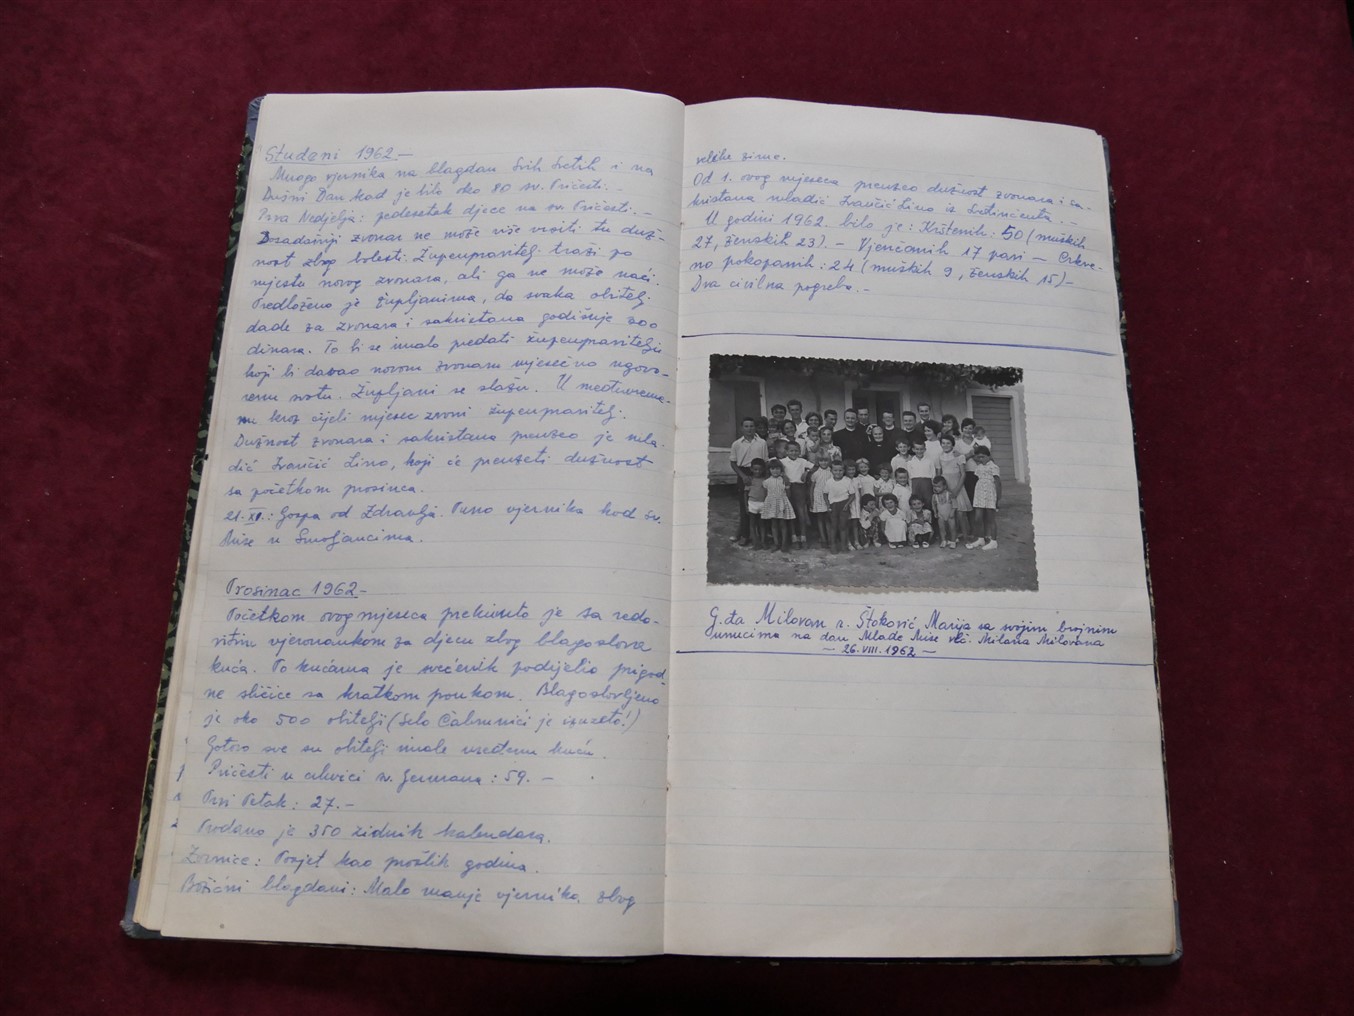 Studeni 1962.—
Mnogo vjernika na blagdan Svih Svetih i na
Dušni Dan kad je bilo oko 80 sv. Pričesti.—
Prva Nedjelja: pedesetak djece na sv. Pričesti.—
Dosadašnji zvonar ne može više vršiti tu duž-
nost zbog bolesti. Župeupravitelj traži po
mjestu novog zvonara, ali ga ne može naći.
Predloženo je župljanima, da svaka obitelj
dade za zvonara i sakristana godišnje 200
dinara. To bi se imalo predati župeupravitelju
koji bi davao novom zvonaru mjesečno ugovo-
renu svotu. Župljani se slažu. U međuvreme-
nu kroz cijeli mjesec zvoni župeupravitelj.
Dužnost zvonara i sakristana preuzeo je mla-
dić Ivančić Lino, koji će preuzeti dužnost
sa početkom prosinca.
21. XI.: Gospa od Zdravlja. Puno vjernika kod sv.
Mise u Smoljancima.
Prosinac 1962.—
Početkom ovog mjeseca prekinuto je sa redo-
vitim vjeronaukom za djecu zbog blagoslova
kuća. Po kućama je svećenik podijelio prigod-
ne sličice sa kratkom poukom. Blagoslovljeno
je oko 500 obitelji (Selo Čabrunići je izuzeto!)
Gotovo sve su obitelji imale uređenu kuću.
Pričesti u crkvici sv. Germana: 59.—
Prvi Petak: 27.—
Prodano je 350 zidnih kalendara.
Zornice: Posjet kao prošlih godina.
Božićni blagdani: Malo manje vjernika zbog
velike zime.
Od 1. ovog mjeseca preuzeo dužnost zvonara i sa-
kristana mladić Ivančić Lino iz Svetvinčenta.—
U godini 1962. bilo je: Krštenih: 50 (muških
27, ženskih 23).— Vjenčanih 17 pari — Crkve-
no pokopanih: 24 (muških 9, ženskih 15)—
Dva civilna pogreba.—
G.đa Milovan r. Štoković, Marija sa svojim brojnim
unucima na dan Mlade Mise vlč. Milana Milovana
— 26. VIII. 1962 —